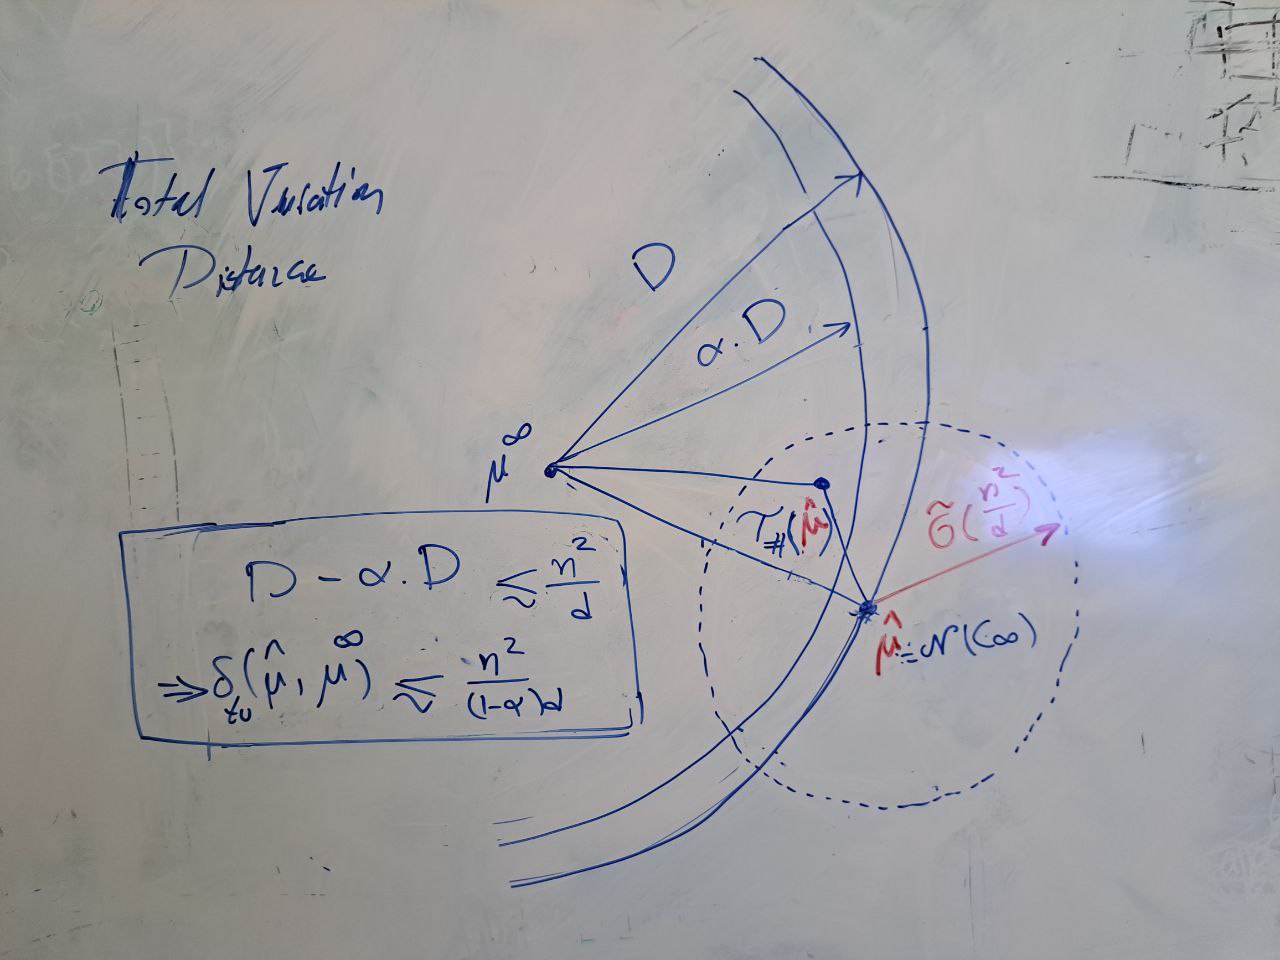 Total Variation
Distance
D
α.D
μ^∞
T_#(μ̂)
Õ(n²/d)
μ̂:=𝒩(C∞)
D - α.D ≲ n²/d
⇒ δ_tv(μ̂, μ^∞) ≲ n²/((1-α)d)